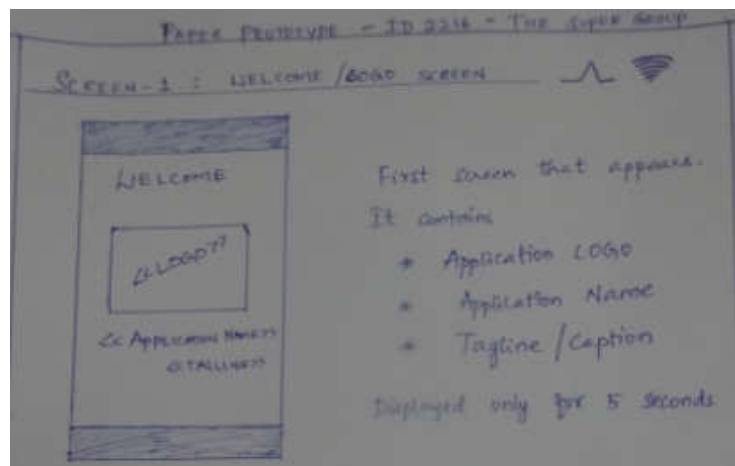 PAPER PROTOTYPE - ID 2216 - THE SUPER GROUP
SCREEN-1 : WELCOME / LOGO SCREEN
WELCOME
<<LOGO>>
<< APPLICATION NAME>>
First screen that appears.
It contains
* Application LOGO
* Application Name
* Tagline / Caption
Displayed only for 5 seconds